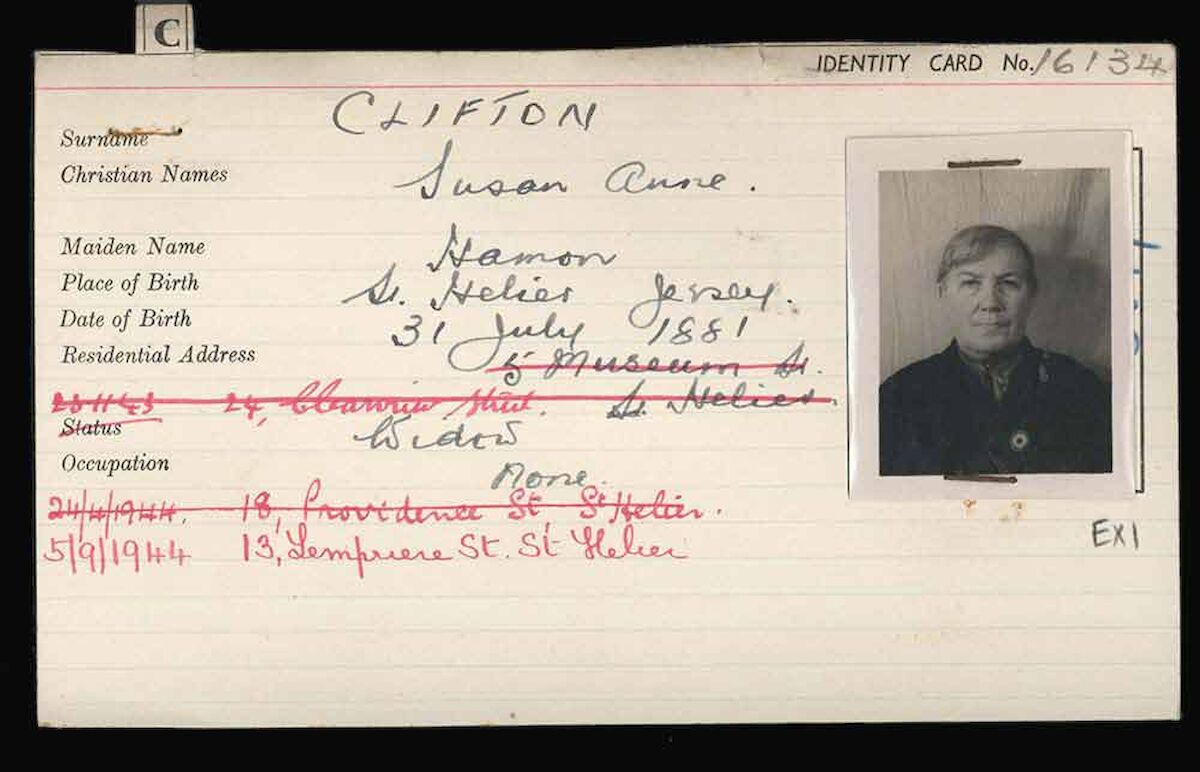 C
IDENTITY CARD No. 16134
Surname CLIFTON
Christian Names Susan Anne.
Maiden Name Hamon
Place of Birth St. Helier Jersey.
Date of Birth 31 July 1881
Residential Address 5 Museum St.
23 11 43 24, Clearview Street. St. Helier.
Status Widow
Occupation None.
24/4/1944. 18, Providence St, St Helier.
5/9/1944 13, Lempriere St. St Helier
EX1